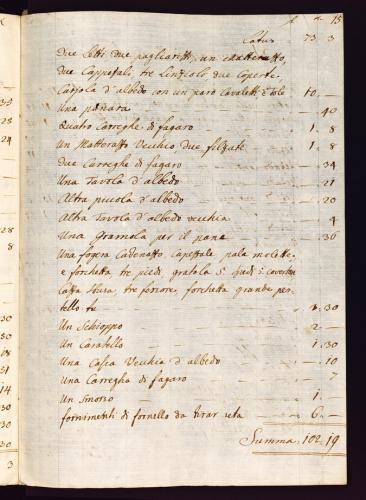 f x 15
Latus 73 3
due Letti due pagliarizi, un matterasso,
due Cappezali, tre Linzioli, due coperte,
Cariola d'albedo con un paro Cavaletti, e tole 10 —
Una panara — 40
Quatro Carreghe di fagaro 1. 8
un Matterasso Vecchio due filzate 1. 8
due Carreghe di fagaro — 34
Una Tavola d'albedo — 21
Altra picola d'albedo — 20
Altra Tavola d'albedo vecchia 4
Una gramola per il pane — 36
Una fogera Cadenasso, Capezzale pala molette,
e forchetta tre piedi gratola
Cazza tre forchetta grande per
30
Un Schioppo 2 —
Un Caratello 1. 30
Una Casia Vecchia d'albedo — 10
una Carregha di fagaro — 7
Un smorzo 1. —
fornimenti di fornello da tirar seta 6. —
Summa. 102. 19
28
24
28
8
30
30
08
31
14
30
30
3